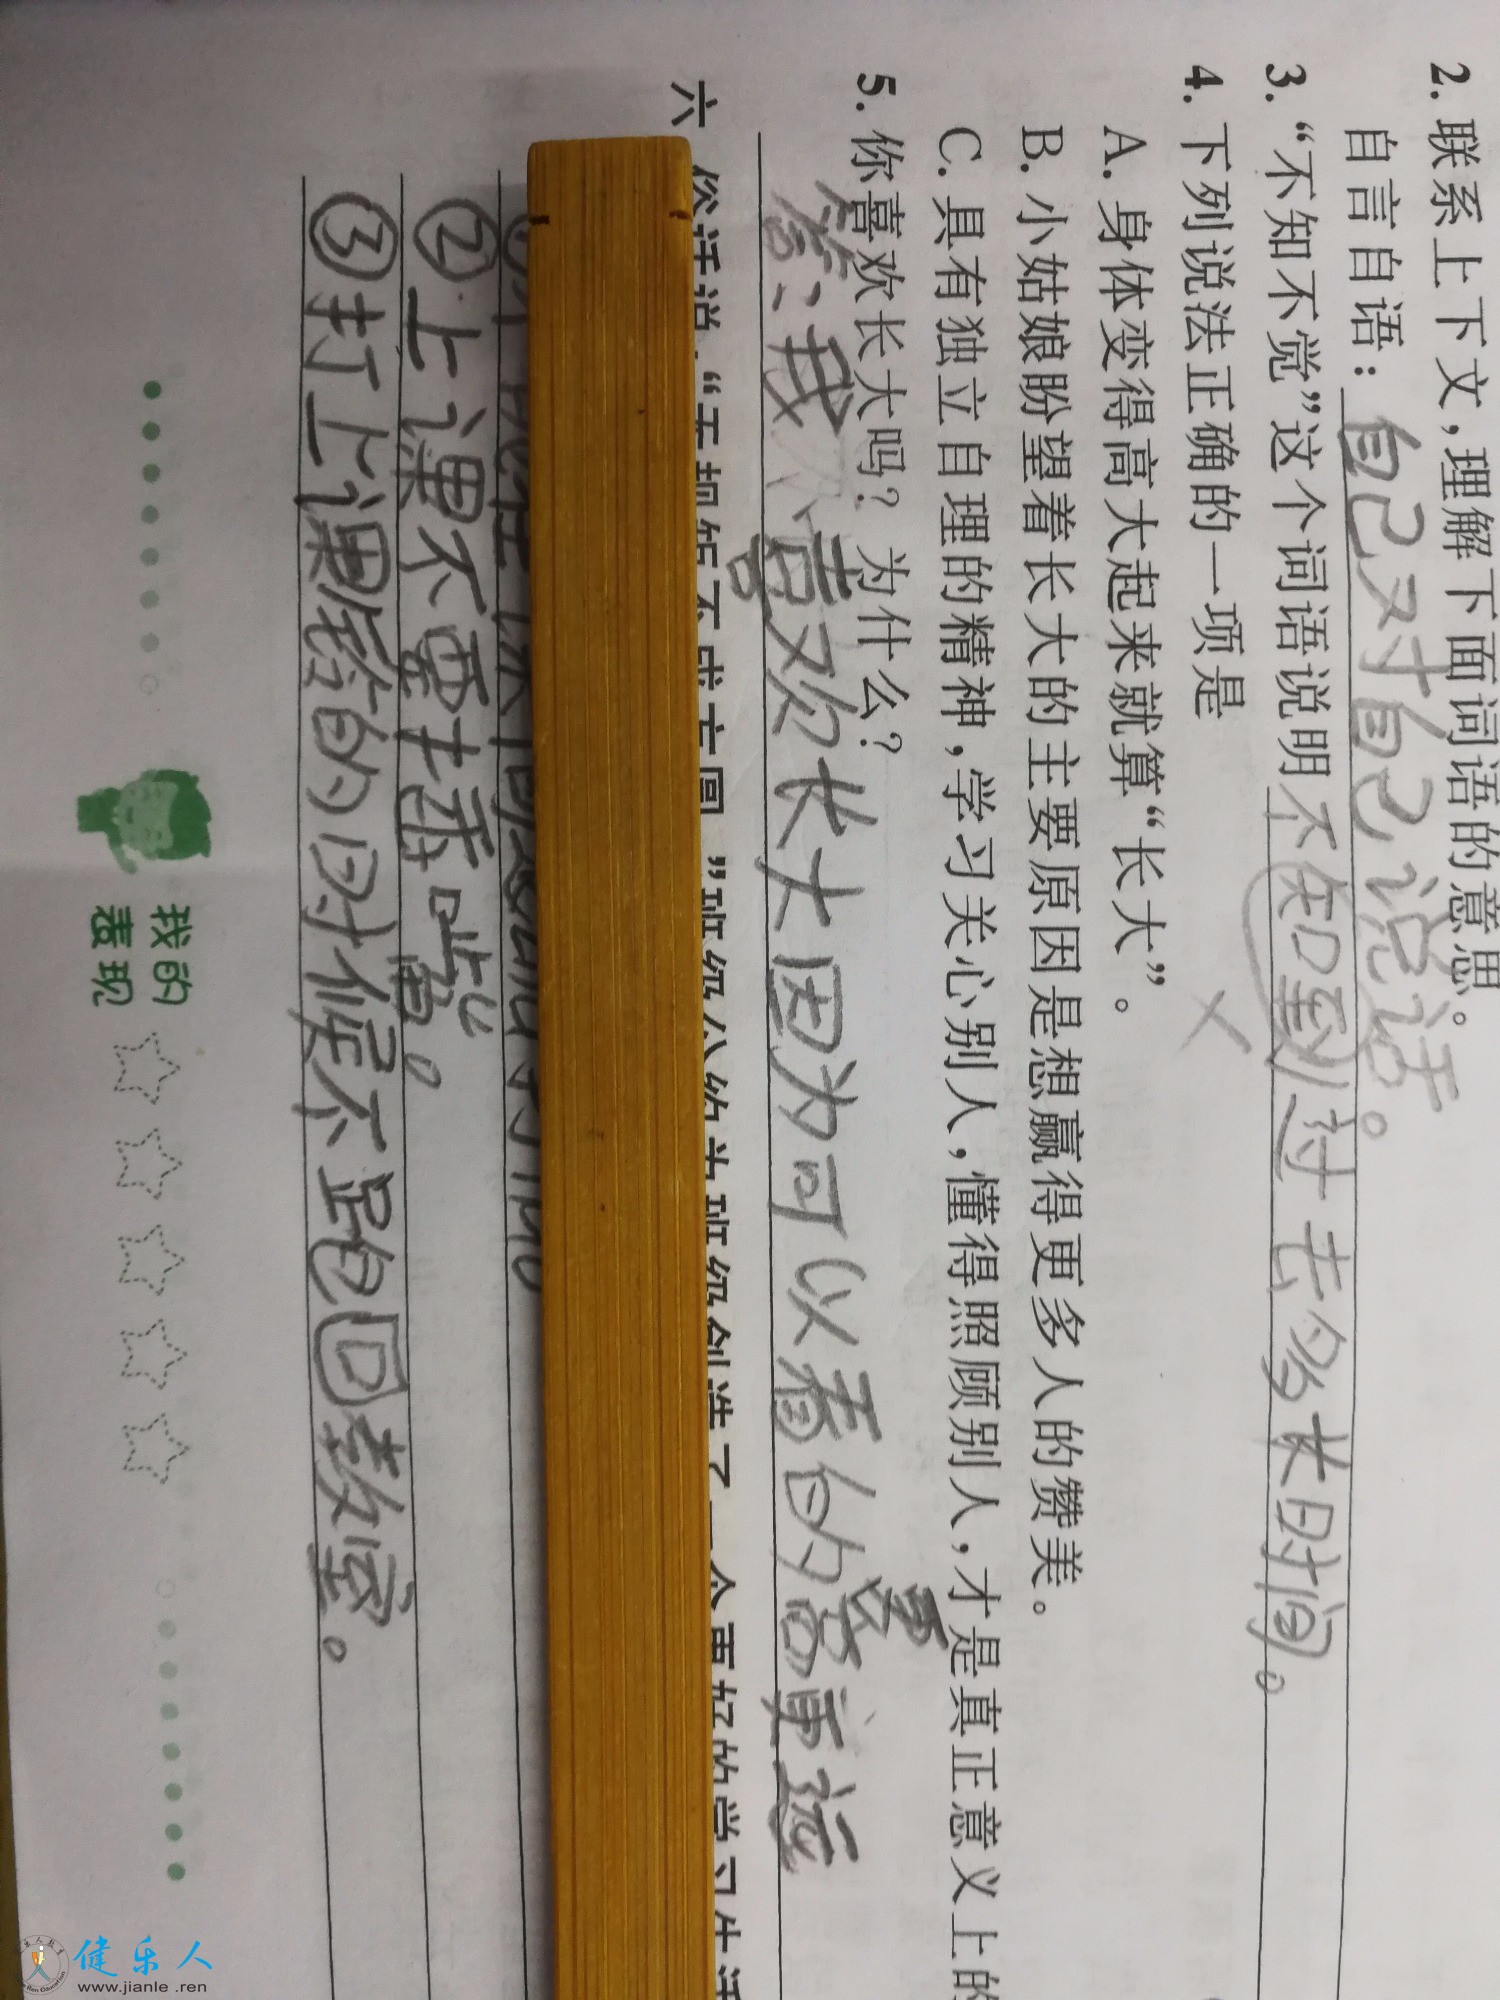 2. 联系上下文，理解下面词语的意思。
自言自语：自己对自己说话。
3. “不知不觉”这个词语说明不知到过去多长时间。
4. 下列说法正确的一项是
A. 身体变得高大起来就算“长大”。
B. 小姑娘盼望着长大的主要原因是想赢得更多人的赞美。
C. 具有独立自理的精神，学习关心别人，懂得照顾别人，才是真正意义上的
5. 你喜欢长大吗？为什么？
答：我喜欢长大因为可以看的更
六
班级公约为班级创造了一个更好的学习生活
②上课不要插嘴。
③打上课铃的时候不跑回教室。
我的
表现
健乐人
www.jianle.ren